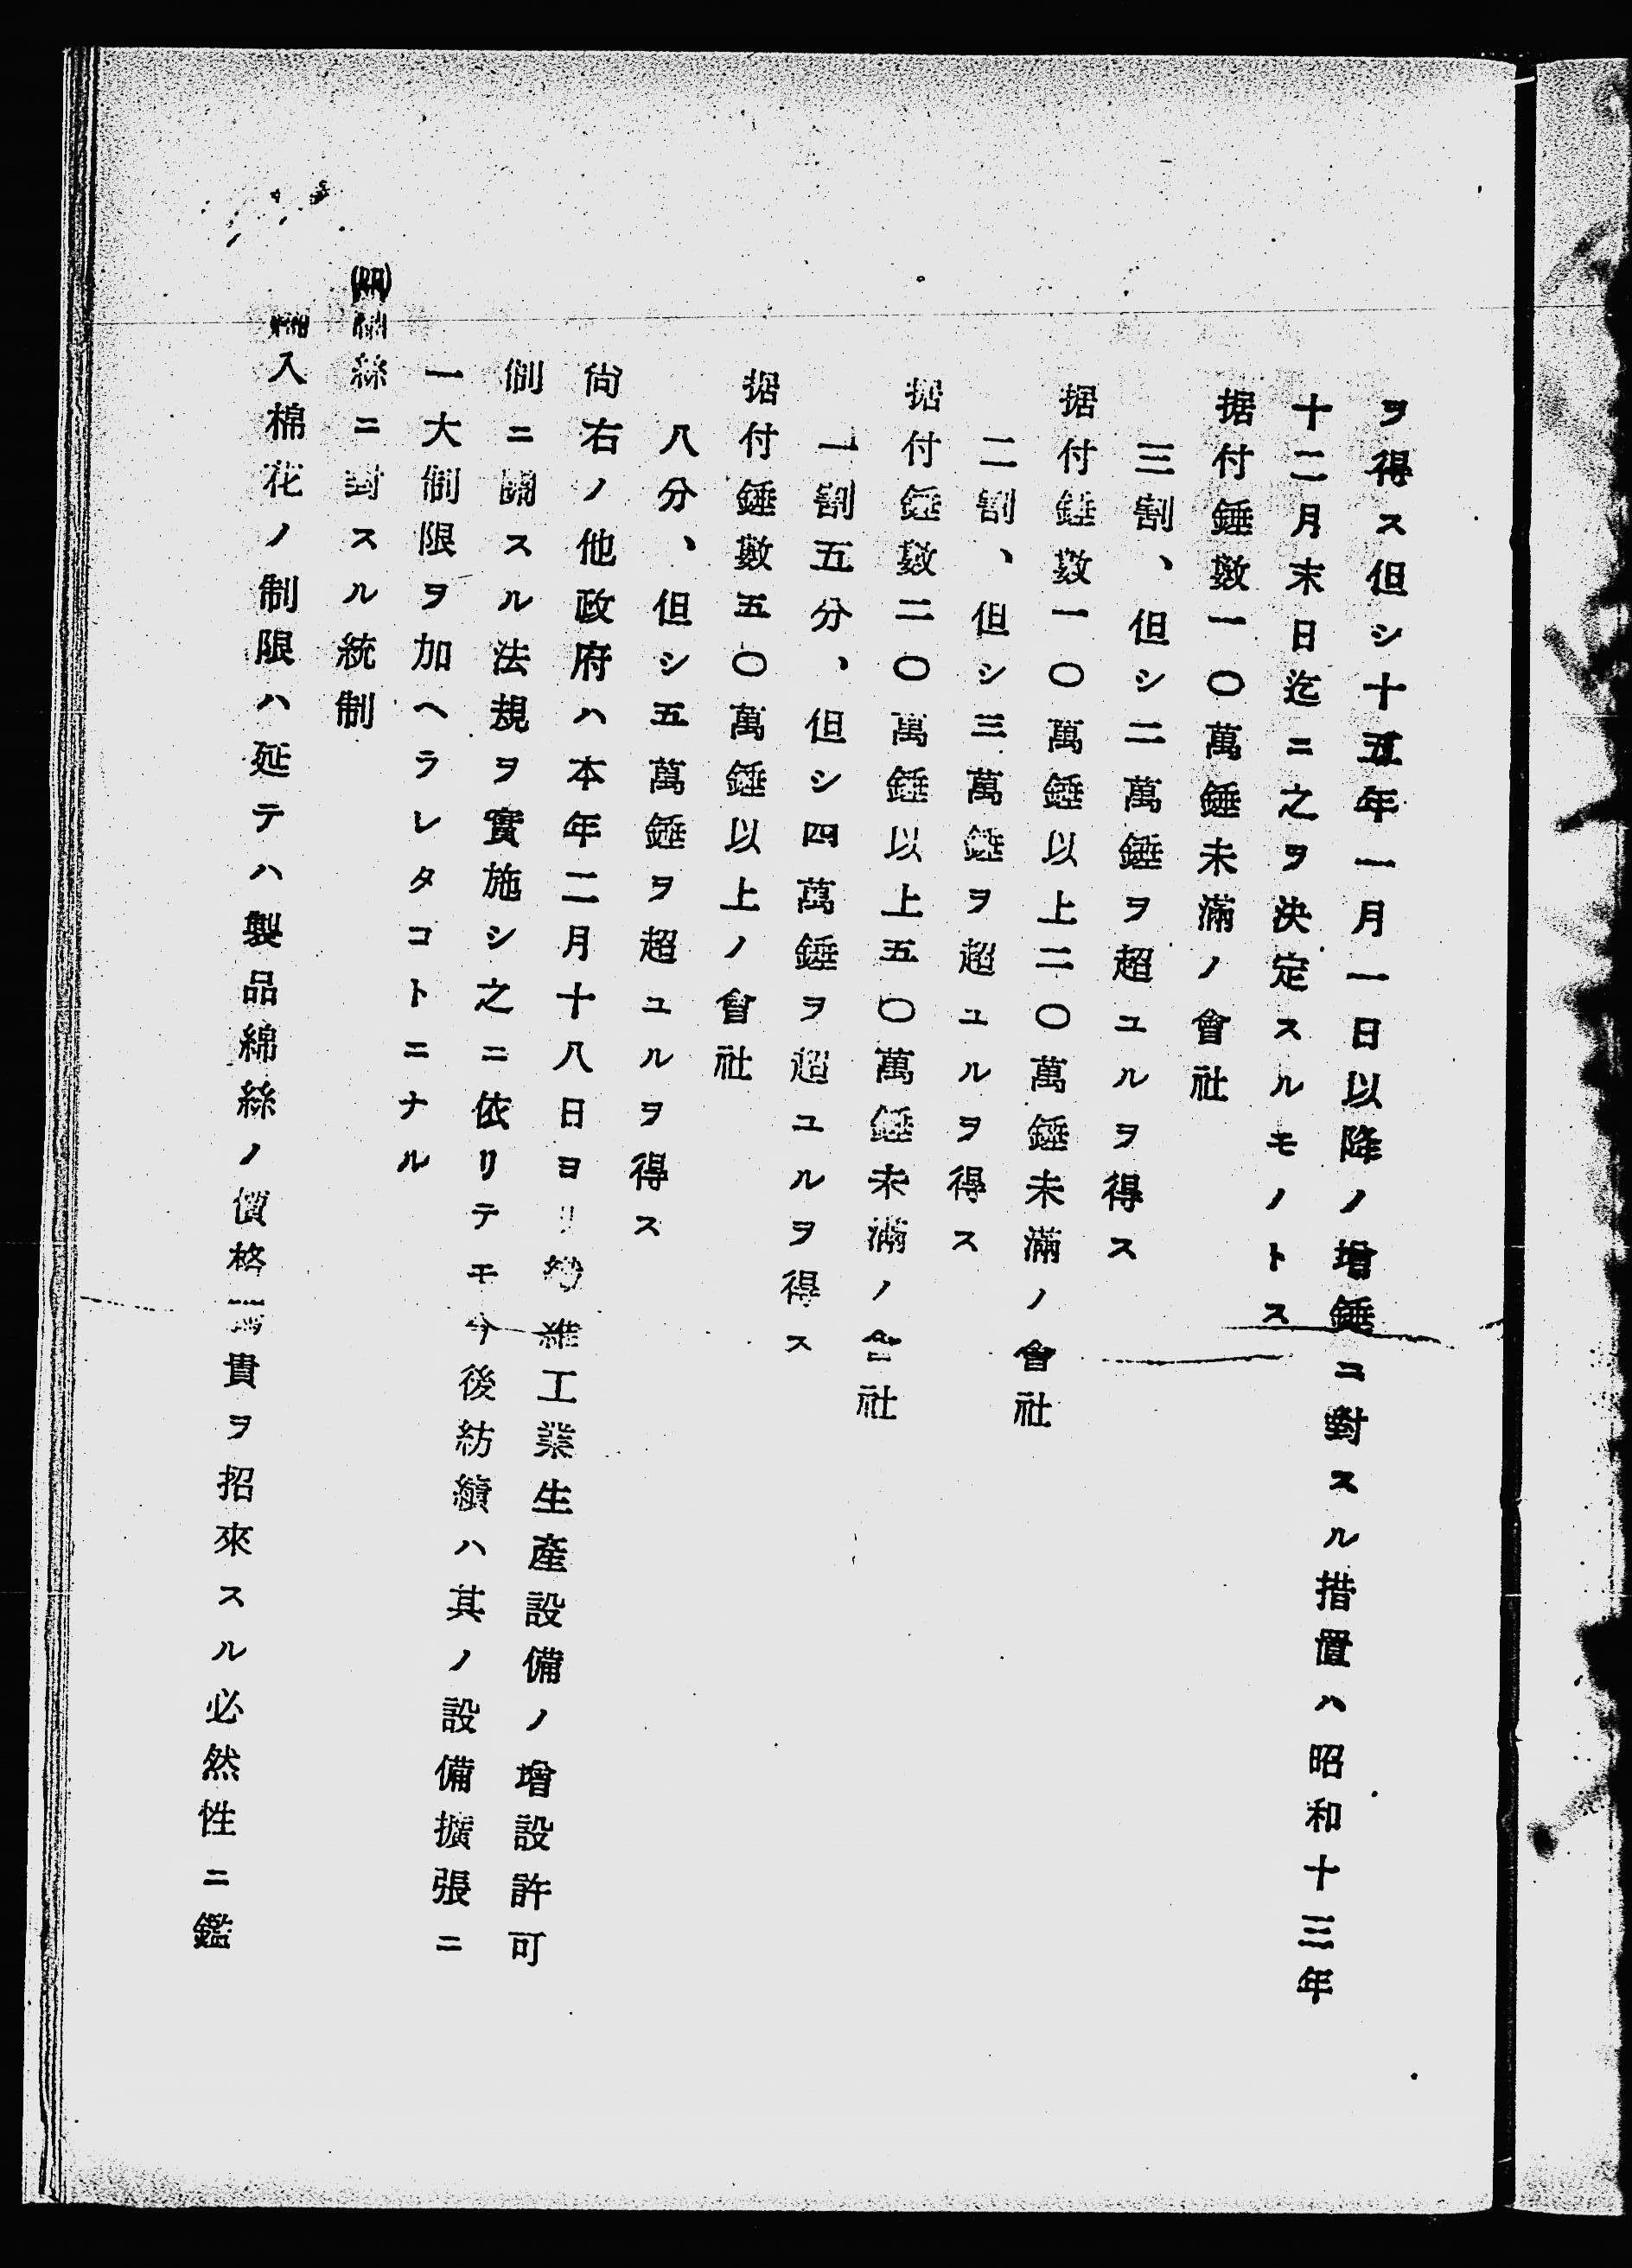 ヲ得ス但シ十五年一月一日以降ノ增錘ニ對スル措置ハ昭和十三年
十二月末日迄ニ之ヲ決定スルモノトス
据付錘數一〇萬錘未滿ノ會社
三割、但シ二萬錘ヲ超ユルヲ得ス
据付錘數一〇萬錘以上二〇萬錘未滿ノ會社
二割、但シ三萬錘ヲ超ユルヲ得ス
据付錘數二〇萬錘以上五〇萬錘未滿ノ會社
一割五分、但シ四萬錘ヲ超ユルヲ得ス
据付錘數五〇萬錘以上ノ會社
八分、但シ五萬錘ヲ超ユルヲ得ス
尙右ノ他政府ハ本年二月十八日ヨリ纖維工業生產設備ノ增設許可
制ニ關スル法規ヲ實施シ之ニ依リテモ今後紡績ハ其ノ設備擴張ニ
一大制限ヲ加ヘラレタコトニナル
(四)綿絲ニ對スル統制
輸入棉花ノ制限ハ延テハ製品綿絲ノ價格騰貴ヲ招來スル必然性ニ鑑